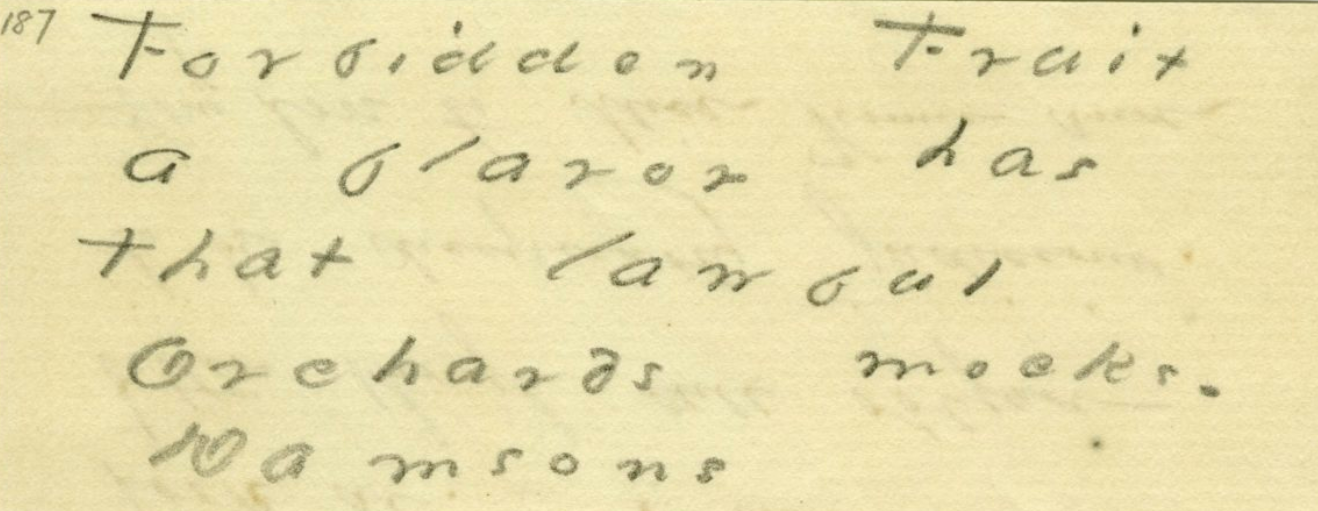 187 Forbidden Fruit
a flavor has
that lawful
Orchards mocks.
Damsons